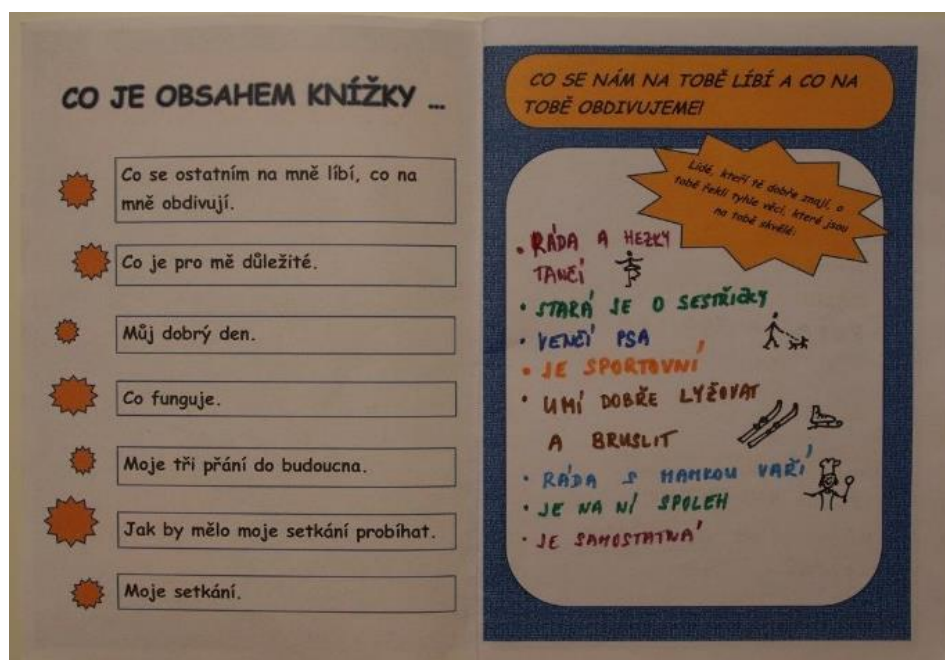 CO JE OBSAHEM KNÍŽKY …
Co se ostatním na mně líbí, co na
mně obdivují.
Co je pro mě důležité.
Můj dobrý den.
Co funguje.
Moje tři přání do budoucna.
Jak by mělo moje setkání probíhat.
Moje setkání.
CO SE NÁM NA TOBĚ LÍBÍ A CO NA
TOBĚ OBDIVUJEME!
Lidé, kteří tě dobře znají, o
tobě řekli tyhle věci, které jsou
na tobě skvělé:
• RÁDA A HEZKY
TANČÍ
• STARÁ SE O SESTŘIČKY
• VENČÍ PSA
• JE SPORTOVNÍ
• UMÍ DOBŘE LYŽOVAT
A BRUSLIT
• RÁDA S MAMKOU VAŘÍ
• JE NA NÍ SPOLEH
• JE SAMOSTATNÁ